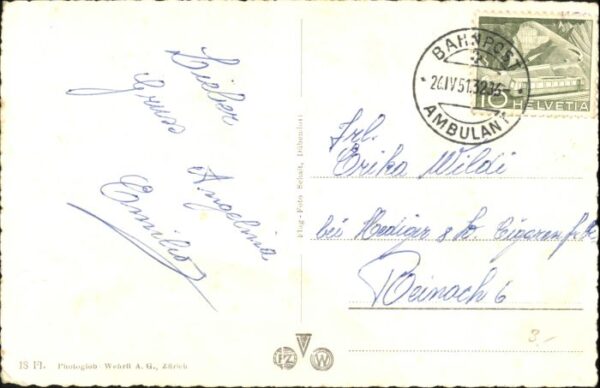 Lieber
Gruss
Angelina
Emilio
Flug-Foto Schait, Dübendorf
18 Fl. Photoglob-Wehrli A. G., Zürich
PZ W
BAHNPOST
24.IV 51.
AMBULANT
10 HELVETIA
Frl.
Erika Wildi
bei Hediger & Co. Cigarrenfabr.
Reinach 6
3.-